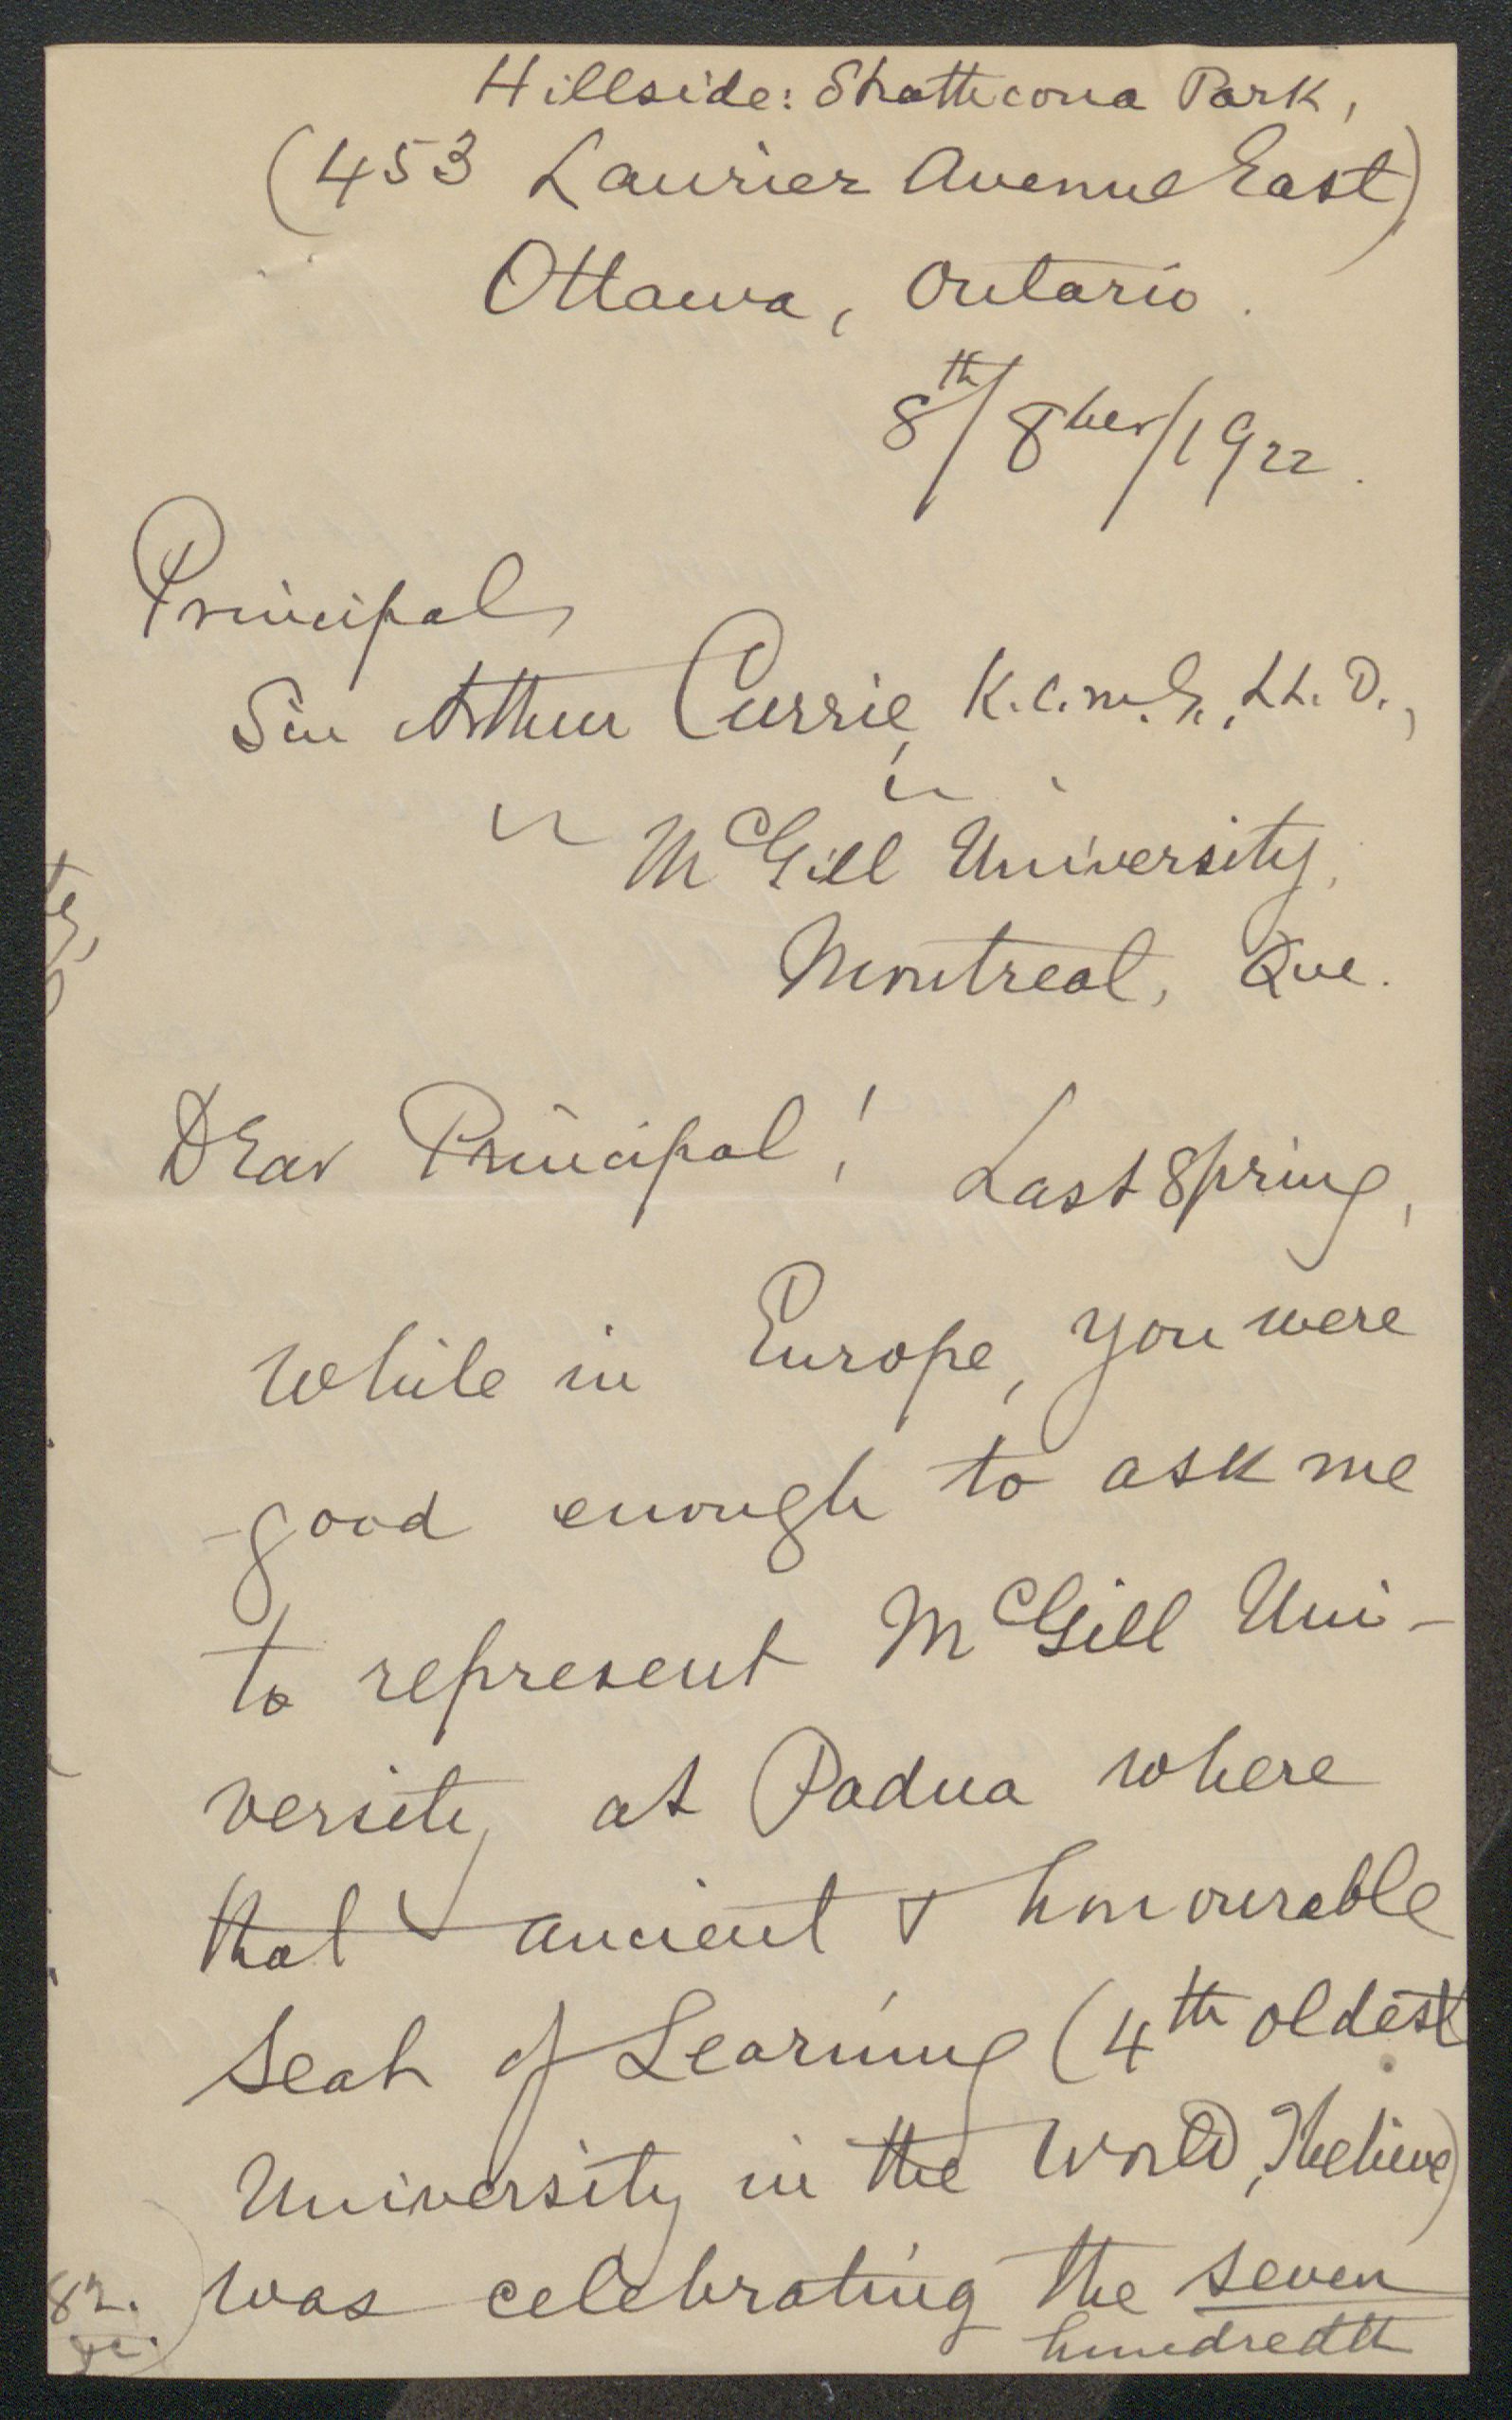 Hillside: Strathcona Park,
(453 Laurier Avenue East)
Ottawa, Ontario.
8th/8ber/1922.
Principal
Sir Arthur Currie, K.C.M.G., LL.D.,
McGill University,
Montreal, Que.
Dear Principal! Last Spring,
while in Europe, you were
good enough to ask me
to represent McGill Uni-
versity at Padua where
that ancient & honourable
Seat of Learning (4th oldest
University in the World, I believe)
was celebrating the seven
hundredth